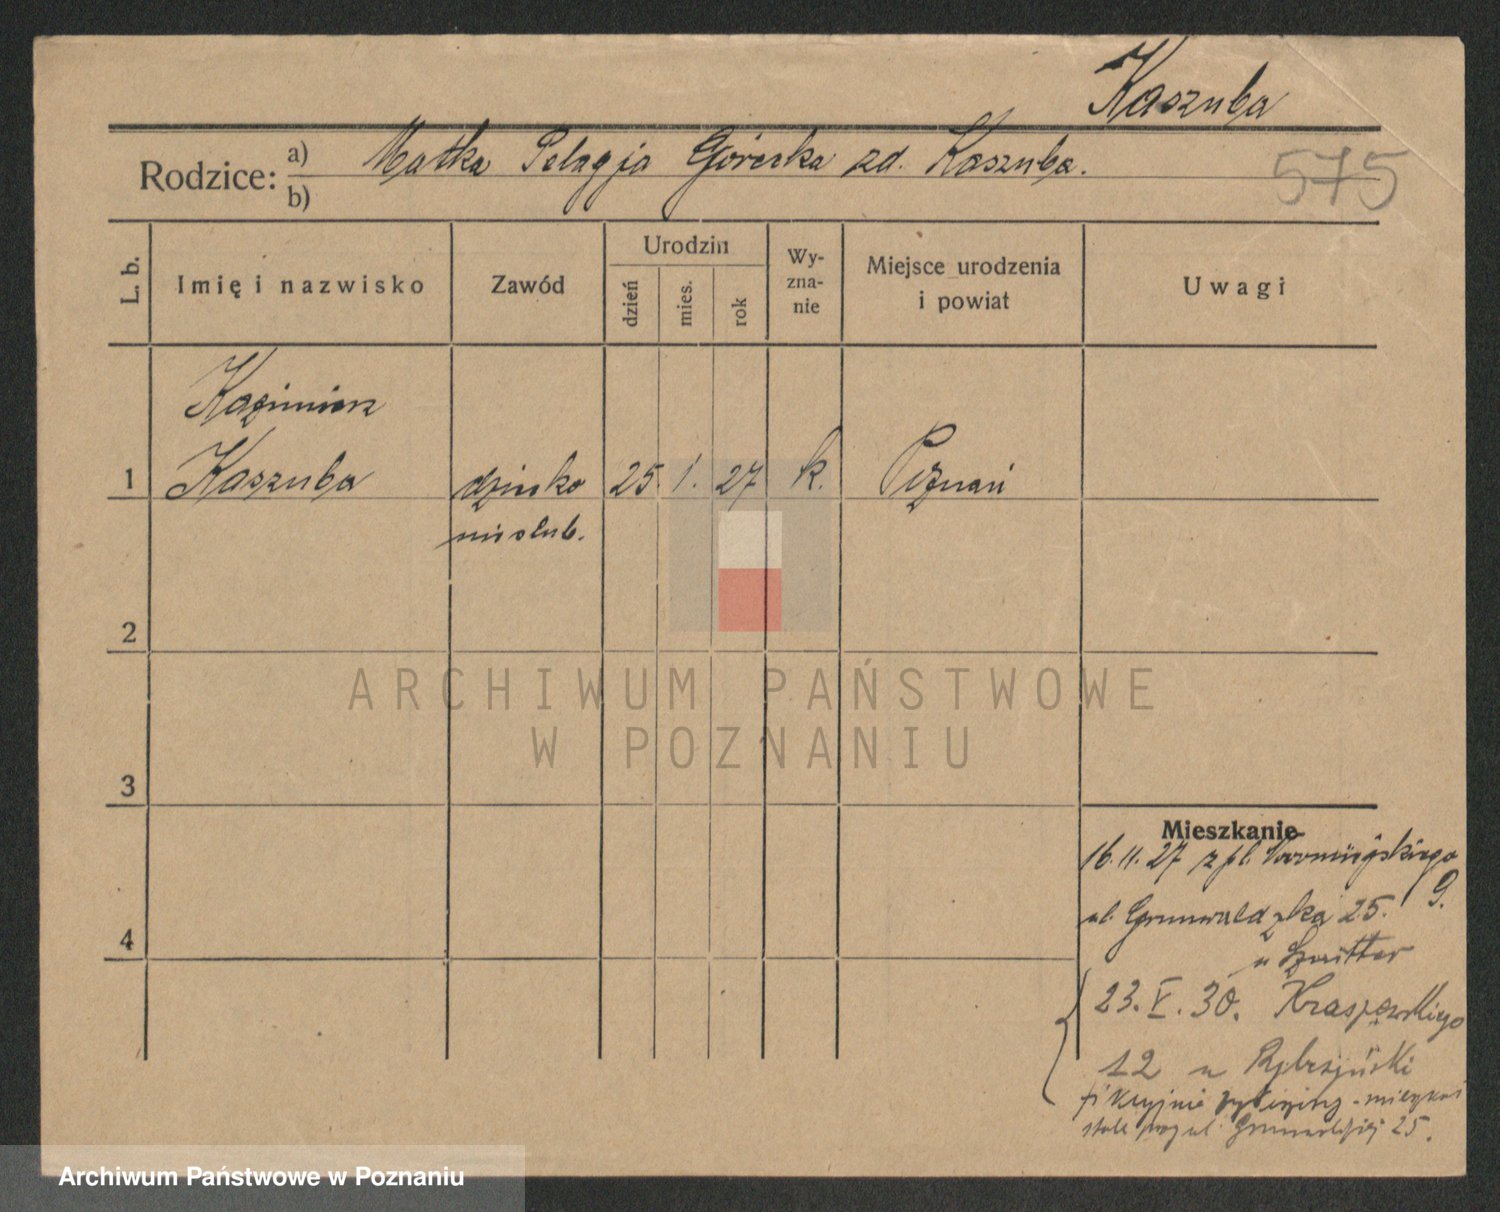 Kaszuba
Rodzice: a) Matka Pelagja Górecka zd. Kaszuba.
b)
575
L. b.
Imię i nazwisko
Zawód
Urodzin
dzień
mies.
rok
Wy-
zna-
nie
Miejsce urodzenia
i powiat
Uwagi
Kazimierz
1 Kaszuba dziecko 25. 1. 27 k. Poznań
nieślub.
2
ARCHIWUM PAŃSTWOWE
W POZNANIU
3
Mieszkanie
16.11.27 z pl.
9.
ul. Grunwaldzka 25.
4
u
23. V. 30. Kraszewskiego
12 u
fikcyjnie
stale przy ul. Grunwaldzkiej 25.
Archiwum Państwowe w Poznaniu